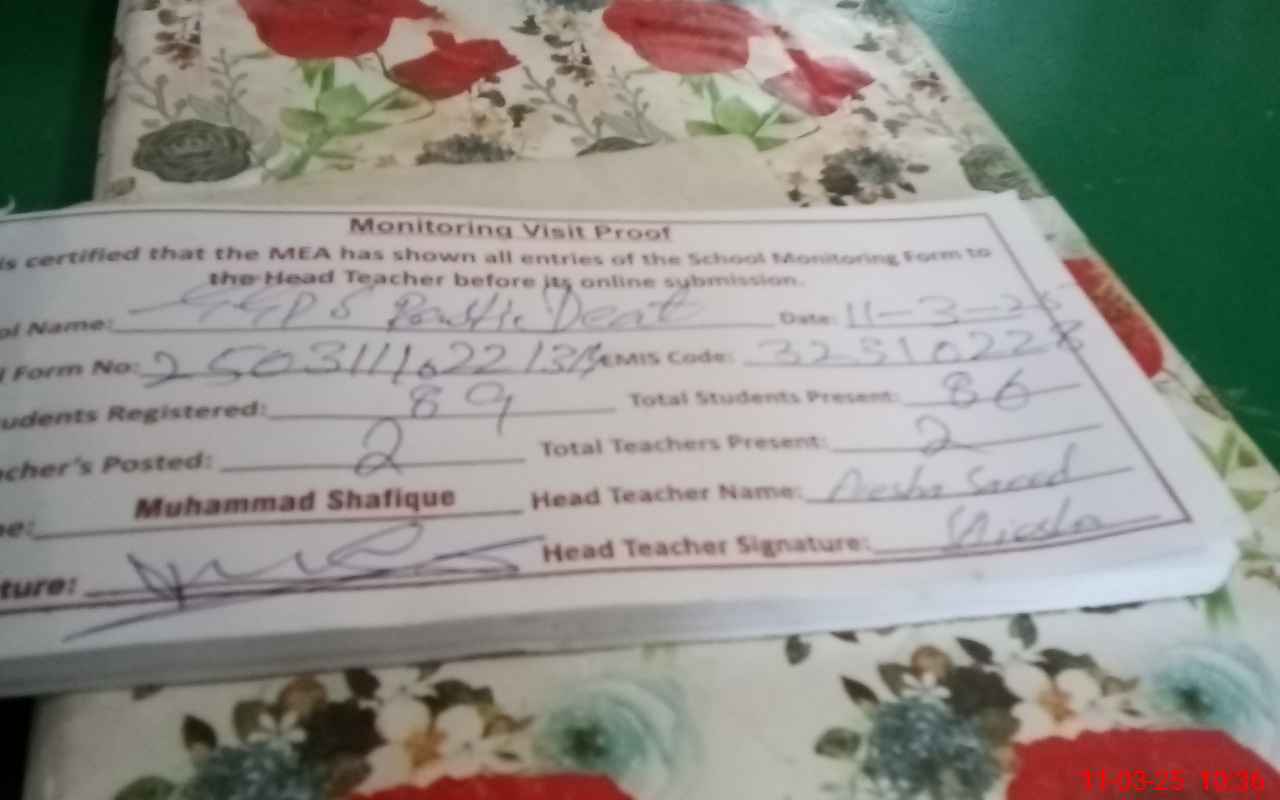 Monitoring Visit Proof
is certified that the MEA has shown all entries of the School Monitoring Form to
the Head Teacher before its online submission.
ol Name: GGPS Basti Deat Date: 11-3-25
Form No: EMIS Code: 32310228
udents Registered: 89 Total Students Present: 86
acher's Posted: 2 Total Teachers Present: 2
me: Muhammad Shafique Head Teacher Name: Saeed
ture: Head Teacher Signature:
11-03-25 10:36